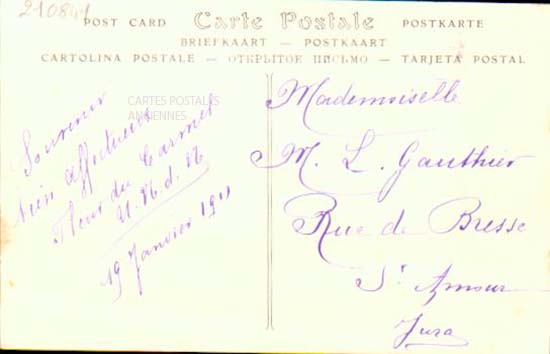 210841
POST CARD Carte Postale POSTKARTE
BRIEFKAART — POSTKAART
CARTOLINA POSTALE — ОТКРЫТОЕ ПИСЬМО — TARJETA POSTAL
CARTES POSTALES
ANCIENNES
Souvenir
bien affectueux
Fleur du Carmel
19 Janvier 1911
Mademoiselle
M. L. Gauthier
Rue de Bresse
St Amour
Jura